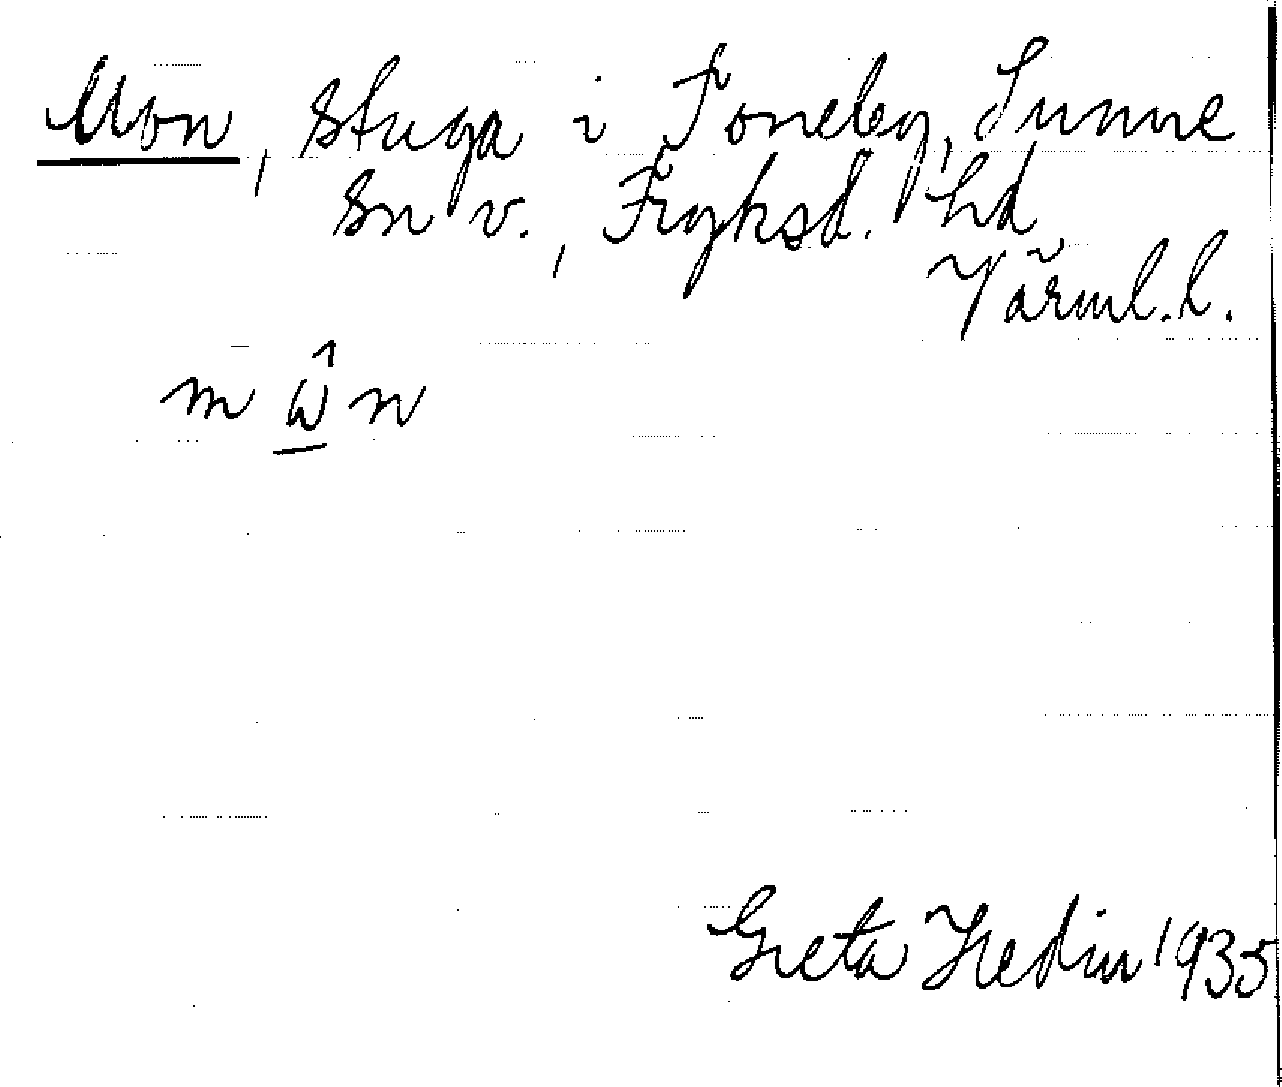 Mon, stuga i Toneby, Sunne
sn v., Fryksd. hd
Värml. l.
m ω̱̂ n
Greta Hedin 1935